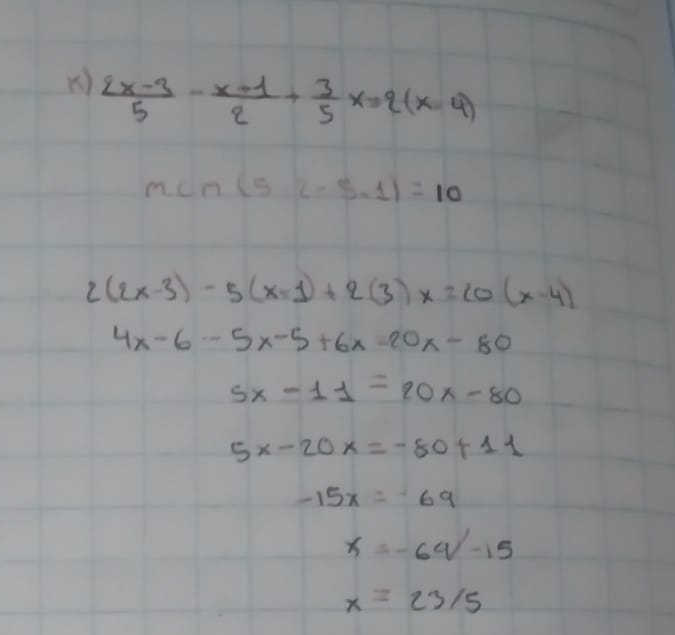 k) 2x-3/5 - x+1/2 + 3/5 x = 2(x-4)
mcm (5-2-5-1) = 10
2(2x-3) - 5(x+1) + 2(3)x = 20(x-4)
4x-6 - 5x-5+6x = 20x - 80
5x - 11 = 20x - 80
5x - 20x = -80 + 11
-15x = -69
x = -69/-15
x = 23/5